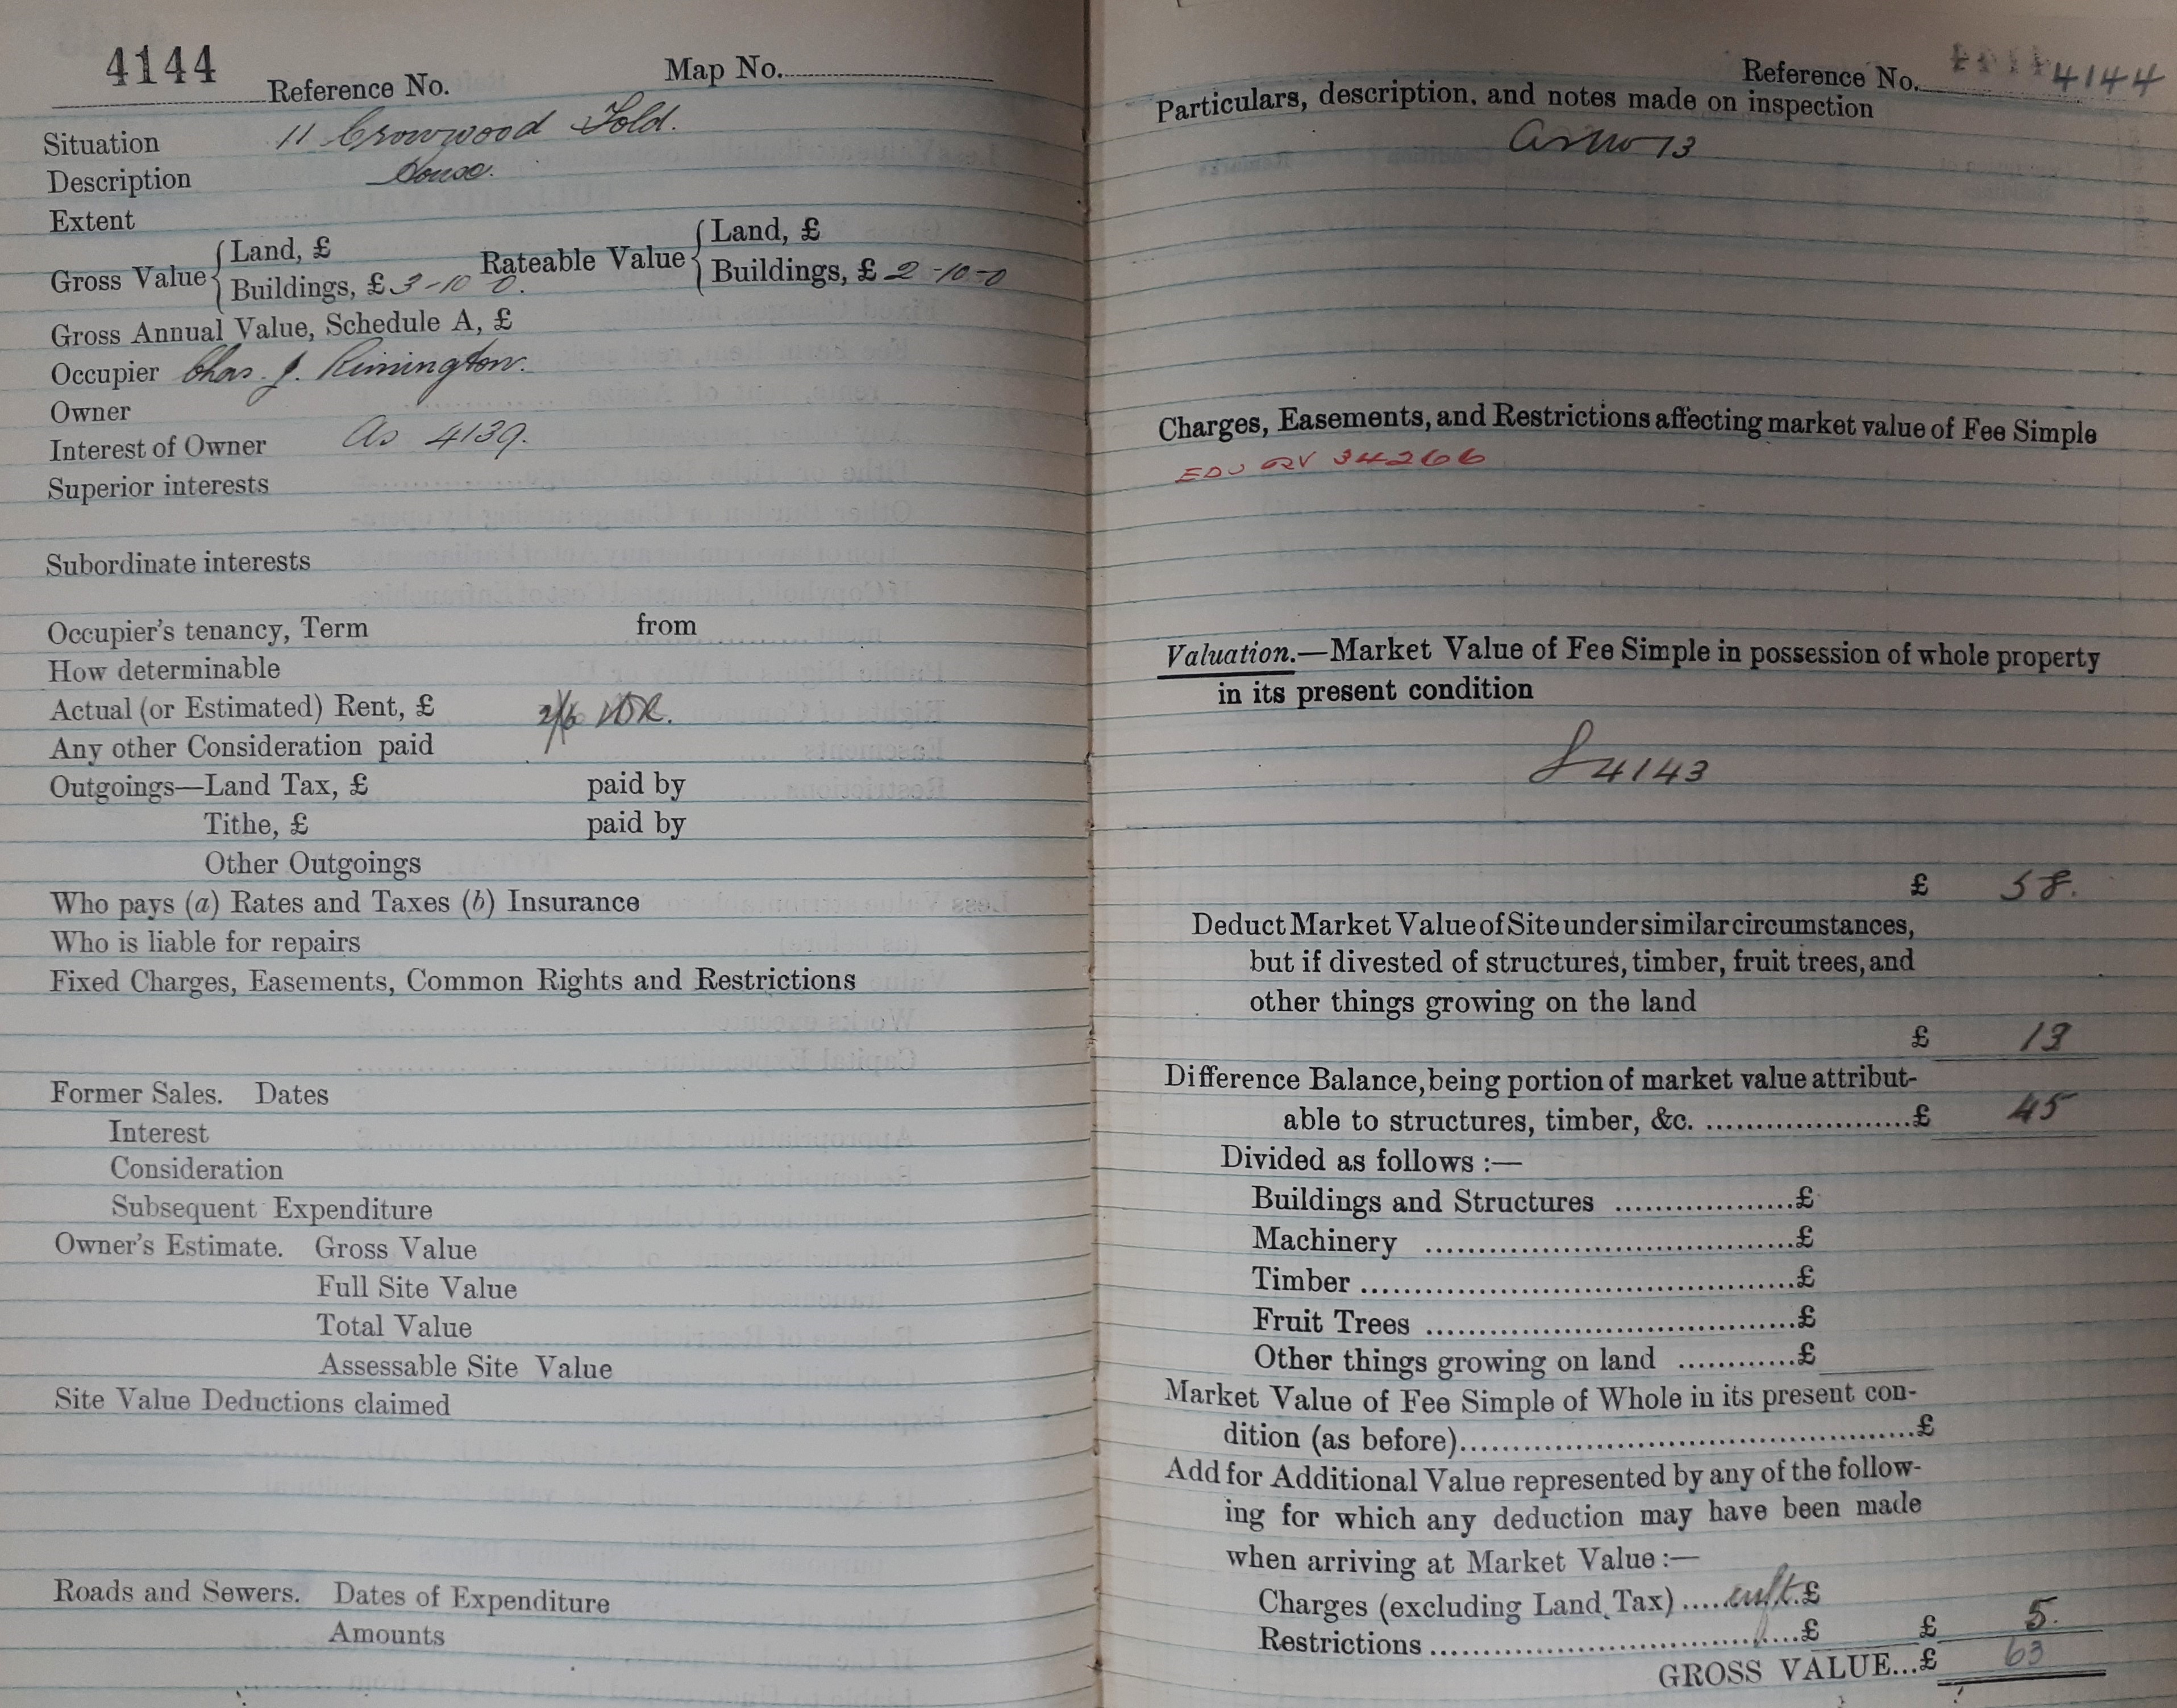 4144 Reference No. Map No.
Situation 11 Crowwood Fold.
Description House.
Extent
Gross Value { Land, £ Rateable Value { Land, £
Buildings, £ 3-10 0. Buildings, £ 2-10-0
Gross Annual Value, Schedule A, £
Occupier Chas. J. Rimington.
Owner
Interest of Owner As 4139.
Superior interests
Subordinate interests
Occupier's tenancy, Term from
How determinable
Actual (or Estimated) Rent, £ 2/6
Any other Consideration paid
Outgoings—Land Tax, £ paid by
Tithe, £ paid by
Other Outgoings
Who pays (a) Rates and Taxes (b) Insurance
Who is liable for repairs
Fixed Charges, Easements, Common Rights and Restrictions
Former Sales. Dates
Interest
Consideration
Subsequent Expenditure
Owner's Estimate. Gross Value
Full Site Value
Total Value
Assessable Site Value
Site Value Deductions claimed
Roads and Sewers. Dates of Expenditure
Amounts
Reference No. 4144
Particulars, description, and notes made on inspection
as no 13
Charges, Easements, and Restrictions affecting market value of Fee Simple
34266
Valuation.—Market Value of Fee Simple in possession of whole property
in its present condition
4143
£ 58.
Deduct Market Value of Site under similar circumstances,
but if divested of structures, timber, fruit trees, and
other things growing on the land
£ 13
Difference Balance, being portion of market value attribut-
able to structures, timber, &c. ......................£ 45
Divided as follows :—
Buildings and Structures ..................£
Machinery ......................................£
Timber ............................................£
Fruit Trees ......................................£
Other things growing on land ............£
Market Value of Fee Simple of Whole in its present con-
dition (as before)..............................................£
Add for Additional Value represented by any of the follow-
ing for which any deduction may have been made
when arriving at Market Value :—
Charges (excluding Land Tax) .... £
Restrictions ......................................£ £ 5.
GROSS VALUE...£ 63